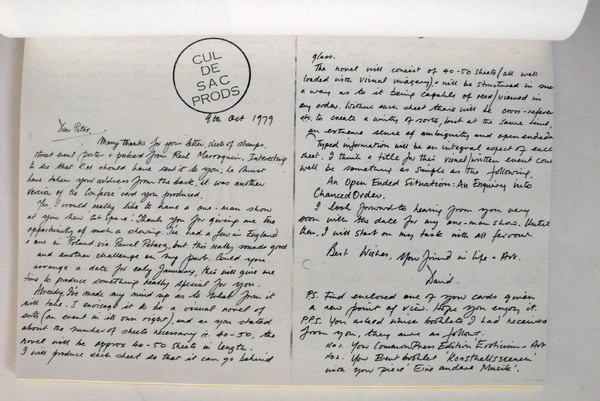 CUL
DE
SAC
PRODS
9th Oct 1979
Dear Peter,
Many thanks for your letter, sheets of stamps,
street event poster + postcard from Raul Marroquin. Interesting
to see that Raul should have sent it to you, he must
have taken your address from the back, it was another
version of the one you produced.
Yes, I would really like to have a one-man show
at your new Art Space. Thank you for giving me the
opportunity of such a showing. I've had a few in England
+ one in Poland via Pawel Petasz, but this really sounds good
and another challenge on my part. Could you
arrange a date for early January, this will give me
time to produce something really special for you.
Already I've made my mind up as to what form it
will take. I envisage it to be a visual novel of
sorts (an event in its own right) and as you stated
about the number of sheets necessary is 40-50, the
novel will be approx 40-50 sheets in length.
I will produce each sheet so that it can go behind
glass.
The novel will consist of 40-50 sheets (all well
loaded with visual imagery) + will be structured in such
a way as to it being capable of read/viewed in
any order. Within each sheet there will be cross-references
etc. to create a unity of sorts, but at the same time,
an extreme sense of ambiguity and open endedness.
Typed information will be an integral aspect of each
sheet. I think a title for this visual/written event could
well be something as simple as the following.
An Open Ended Situation: An Enquiry into
Chanced Order.
I look forward to hearing from you very
soon with the date for my one-man show. Until
then, I will start on my task with all fervour
Best Wishes, Your friend in Life + Art.
David.
P.S. Find enclosed one of your cards given
a new point of view. Hope you enjoy it.
P.P.S. You asked which booklets I had received
from you, they were as follows.
No 1. Your CommonPress Edition 'Eroticism + Art'
No 2. Your Bent booklet 'Konsthallsscenen'
with your piece 'Eine andere Musik'.